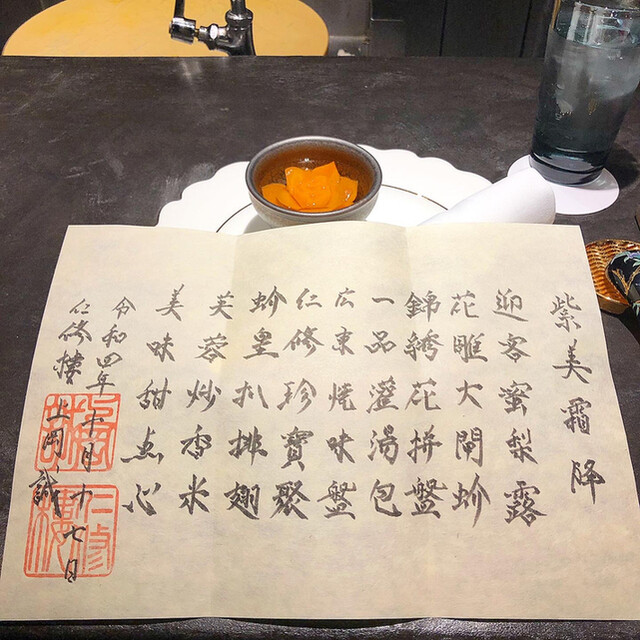 紫美霜降
迎客蜜梨露
花雕大閘蚧
錦綉花拼盤
一品灌湯包
広東焼味盤
仁修珍寶聚
蚧皇扒排翅
芙蓉炒香米
美味甜点心
令和四年
十月十七日
仁修樓
上岡誠
仁修樓